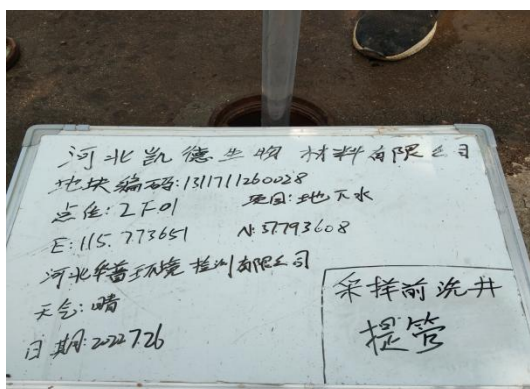 河北凯德生物材料有限公司
地块编码:1311711260028
点位:2F01 项目:地下水
E:115.773651 N:37.793608
河北华普环境检测有限公司
天气:晴
日期:2022.7.26
采样前洗井
提管